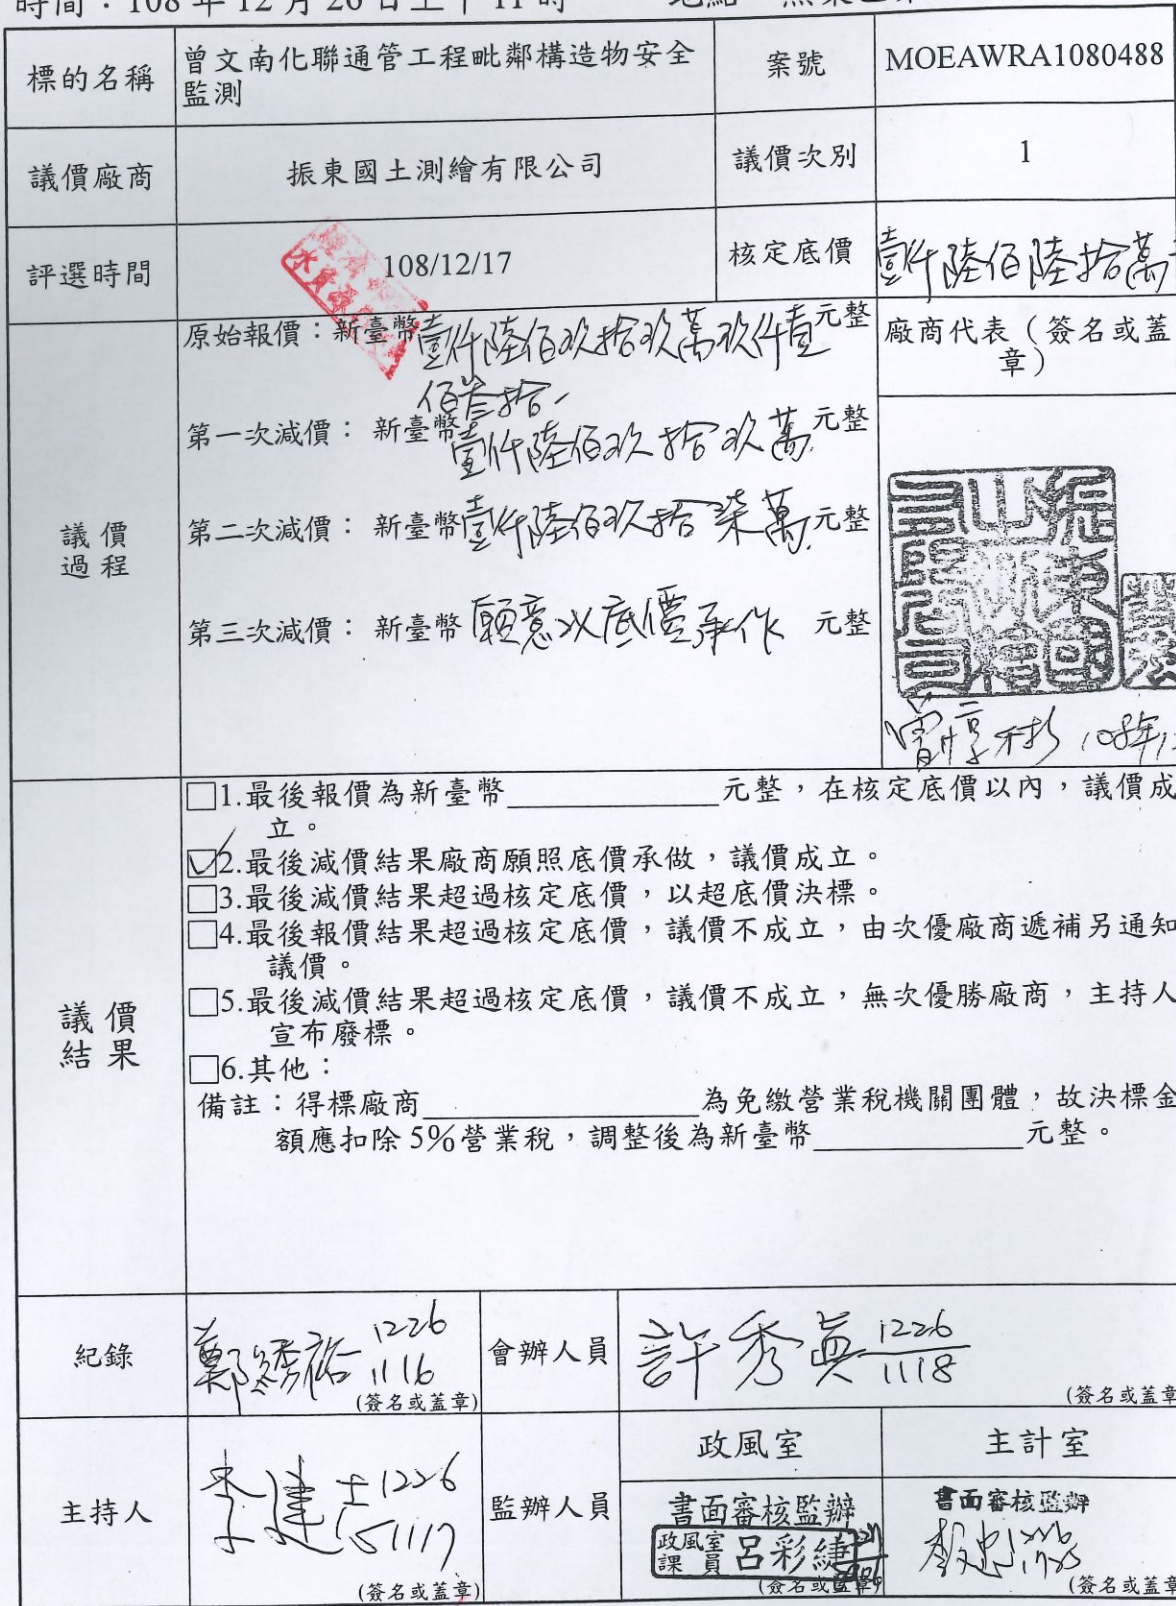 時間：108 年 12 月 26 日上午 11 時 地點：
標的名稱
曾文南化聯通管工程毗鄰構造物安全
監測
案號
MOEAWRA1080488
議價廠商
振東國土測繪有限公司
議價次別
1
評選時間
108/12/17
核定底價
壹仟陸佰陸拾萬
議價
過程
原始報價：新臺幣壹仟陸佰玖拾玖萬玖仟壹元整
佰叁拾
第一次減價：新臺幣壹仟陸佰玖拾玖萬元整
第二次減價：新臺幣壹仟陸佰玖拾柒萬元整
第三次減價：新臺幣願意以底價承作 元整
廠商代表（簽名或蓋
章）
振東國
土測繪
有限公司
108年1
議價
結果
□1.最後報價為新臺幣____________元整，在核定底價以內，議價成
立。
☑2.最後減價結果廠商願照底價承做，議價成立。
□3.最後減價結果超過核定底價，以超底價決標。
□4.最後報價結果超過核定底價，議價不成立，由次優廠商遞補另通知
議價。
□5.最後減價結果超過核定底價，議價不成立，無次優勝廠商，主持人
宣布廢標。
□6.其他：
備註：得標廠商________________為免繳營業稅機關團體，故決標金
額應扣除 5%營業稅，調整後為新臺幣____________元整。
紀錄
鄭綉裕 1226
1116
(簽名或蓋章)
會辦人員
許秀真 1226
1118
(簽名或蓋章
主持人
李建 1226
1117
(簽名或蓋章)
監辦人員
政風室
書面審核監辦
政風室
課員 呂彩
(簽名或蓋章)
主計室
書面審核監辦
(簽名或蓋章